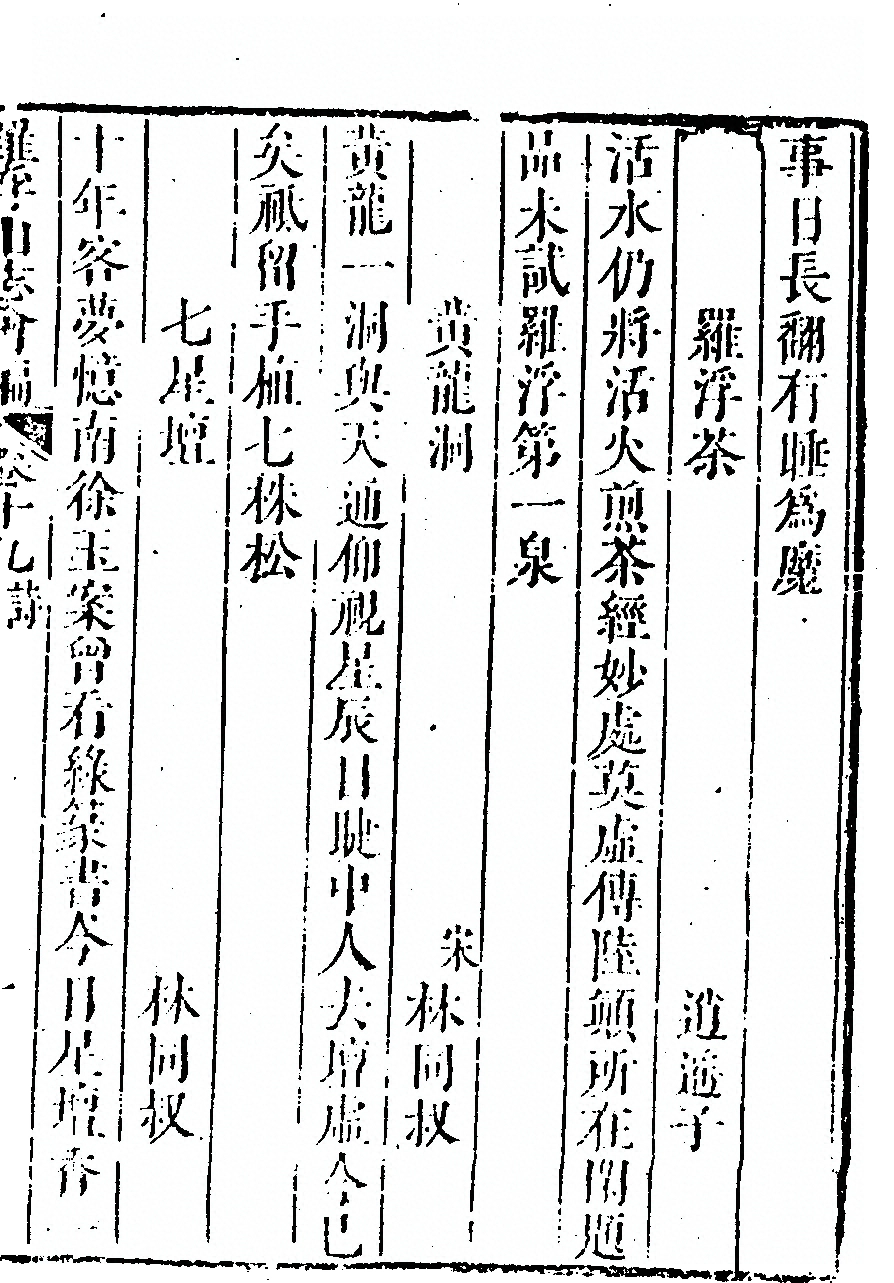 事日長翻作睡爲魔
羅浮茶　逍遙子
活水仍將活火煎茶經妙處莫虛傳陸顛所在閒題
品未試羅浮第一泉
黄龍洞　宋林同叔
黄龍一洞與天通仰視星辰日馭中人去壇虛今已
矣祗留手植七株松
七星壇　林同叔
十年客夢憶南徐玉案曾看綠篆書今日星壇香一
羅浮山志會編　卷十九詩